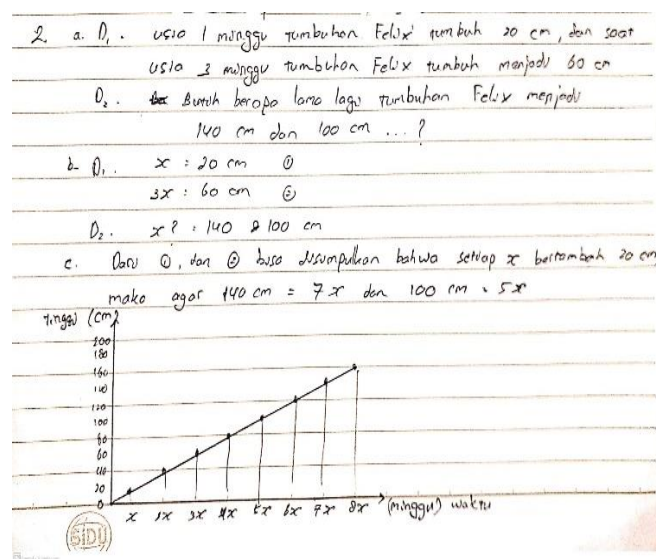 2 a. D₁. usia 1 minggu tumbuhan Felix tumbuh 20 cm, dan saat
usia 3 minggu tumbuhan Felix tumbuh menjadi 60 cm
D₂. Butuh berapa lama lagi tumbuhan Felix menjadi
140 cm dan 100 cm ... ?
b. D₁. x : 20 cm ①
3x : 60 cm ②
D₂. x? : 140 & 100 cm
c. Dari ①, dan ② bisa disimpulkan bahwa setiap x bertambah 20 cm
maka agar 140 cm = 7x dan 100 cm = 5x
tinggi (cm)
200
180
160
140
120
100
80
60
40
20
0
x 2x 3x 4x 5x 6x 7x 8x (minggu) waktu
SIDU